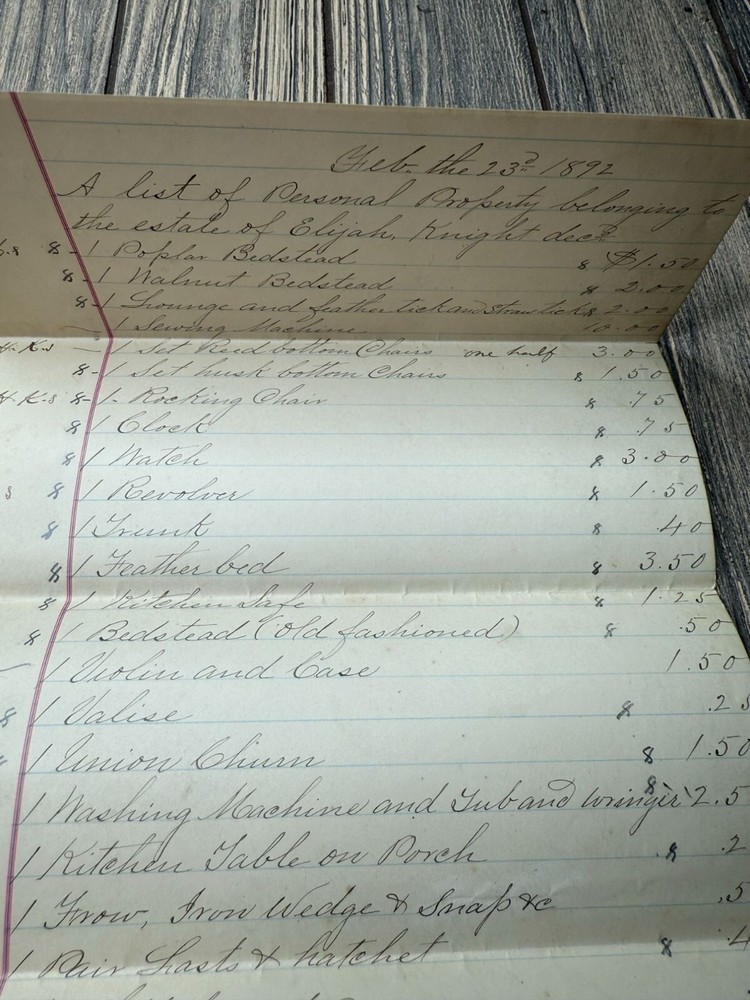 Feb. the 23d 1892
A list of Personal Property belonging to
the estate of Elijah. Knight decd
8 - 1 Poplar Bedstead 8 $1.50
8 - 1 Walnut Bedstead 8 2.00
8 - 1 Lounge and feather tick and Straw tick 8 2.00
— 1 Sewing Machine 10.00
H. K. s — 1 Set Reed bottom Chairs one half 3.00
8 - 1 Set husk bottom Chairs 8 1.50
H. K. s 8 - 1. Rocking Chair 8 .75
8 1 Clock 8 .75
8 1 Watch 8 3.00
s 8 1 Revolver 8 1.50
8 1 Trunk 8 .40
8 1 Feather bed 8 3.50
8 1 Kitchen Safe 8 1.25
8 1 Bedstead (Old fashioned) 8 .50
— 1 Violin and Case 1.50
8 1 Valise 8 .25
1 Union Churn 8 1.50
1 Washing Machine and Tub and wringer 8 2.5
1 Kitchen Table on Porch 8 .2
1 Frow, Iron Wedge & Snap &c .5
1 Pair Lasts & hatchet 8 .4